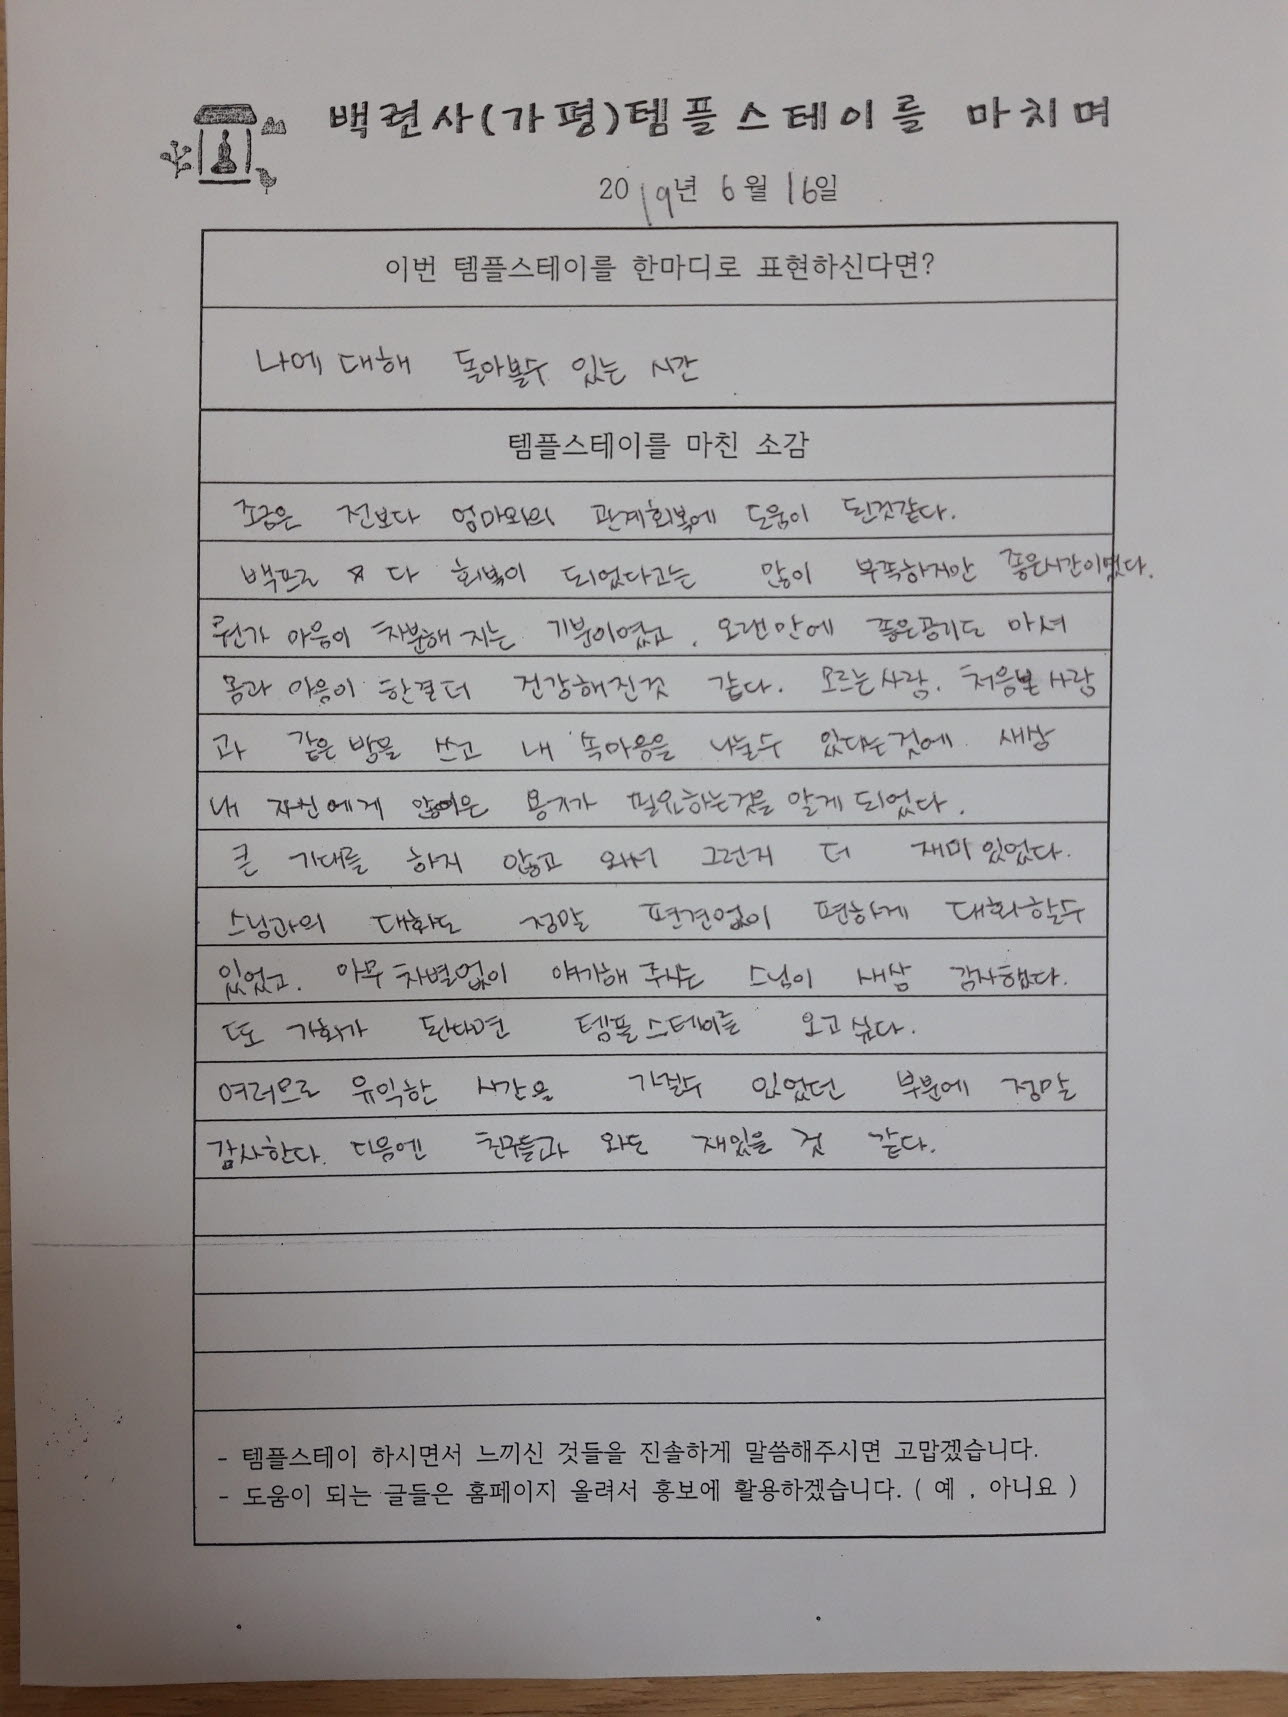 백련사(가평)템플스테이를 마치며
2019년 6월 16일
이번 템플스테이를 한마디로 표현하신다면?
나에 대해 돌아볼수 있는 시간
템플스테이를 마친 소감
조금은 전보다 엄마와의 관계회복에 도움이 된것같다.
백프로 다 회복이 되었다고는 많이 부족하지만 좋은시간이였다.
뭔가 마음이 차분해 지는 기분이였고, 오랜만에 좋은공기도 마셔
몸과 마음이 한결더 건강해진것 같다. 모르는사람, 처음본 사람
과 같은 방을 쓰고 내 속마음을 나눌수 있다는것에 새삼
내 자신에게 많은 용기가 필요하는것을 알게 되었다.
큰 기대를 하지 않고 와서 그런지 더 재미 있었다.
스님과의 대화도 정말 편견없이 편하게 대화할수
있었고, 아무 차별없이 얘기해 주시는 스님이 새삼 감사했다.
또 기회가 된다면 템플스테이를 오고싶다.
여러모로 유익한 시간을 가질수 있었던 부분에 정말
감사한다. 다음엔 친구들과 와도 재밌을 것 같다.
- 템플스테이 하시면서 느끼신 것들을 진솔하게 말씀해주시면 고맙겠습니다.
- 도움이 되는 글들은 홈페이지 올려서 홍보에 활용하겠습니다. ( 예 , 아니요 )